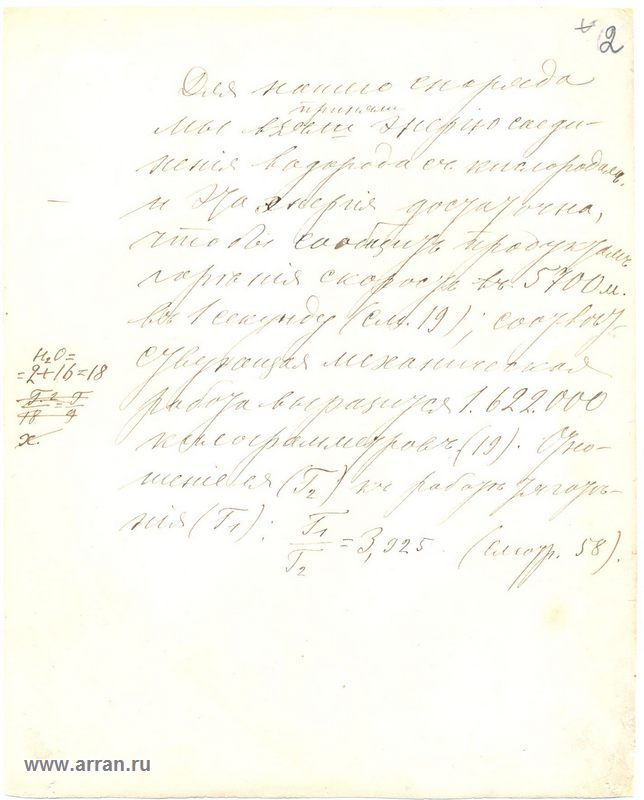 2
Для нашего снаряда
приняли
мы взяли энергію соеди-
ненія водорода съ кислородомъ.
И эта энергія достаточна,
чтобы сообщить продуктамъ
горѣнія скорость въ 5700 м.
въ 1 секунду (см. 19); соотвѣт-
ствующая механическая
работа выразится 1.622.000
килограмметровъ (19). Отно-
шеніе ея (Т2) къ работѣ тяготѣ-
нія (Т1): T1/T2 = 3,925. (смотр. 58).
H2O=
=2+16=18
x.
www.arran.ru